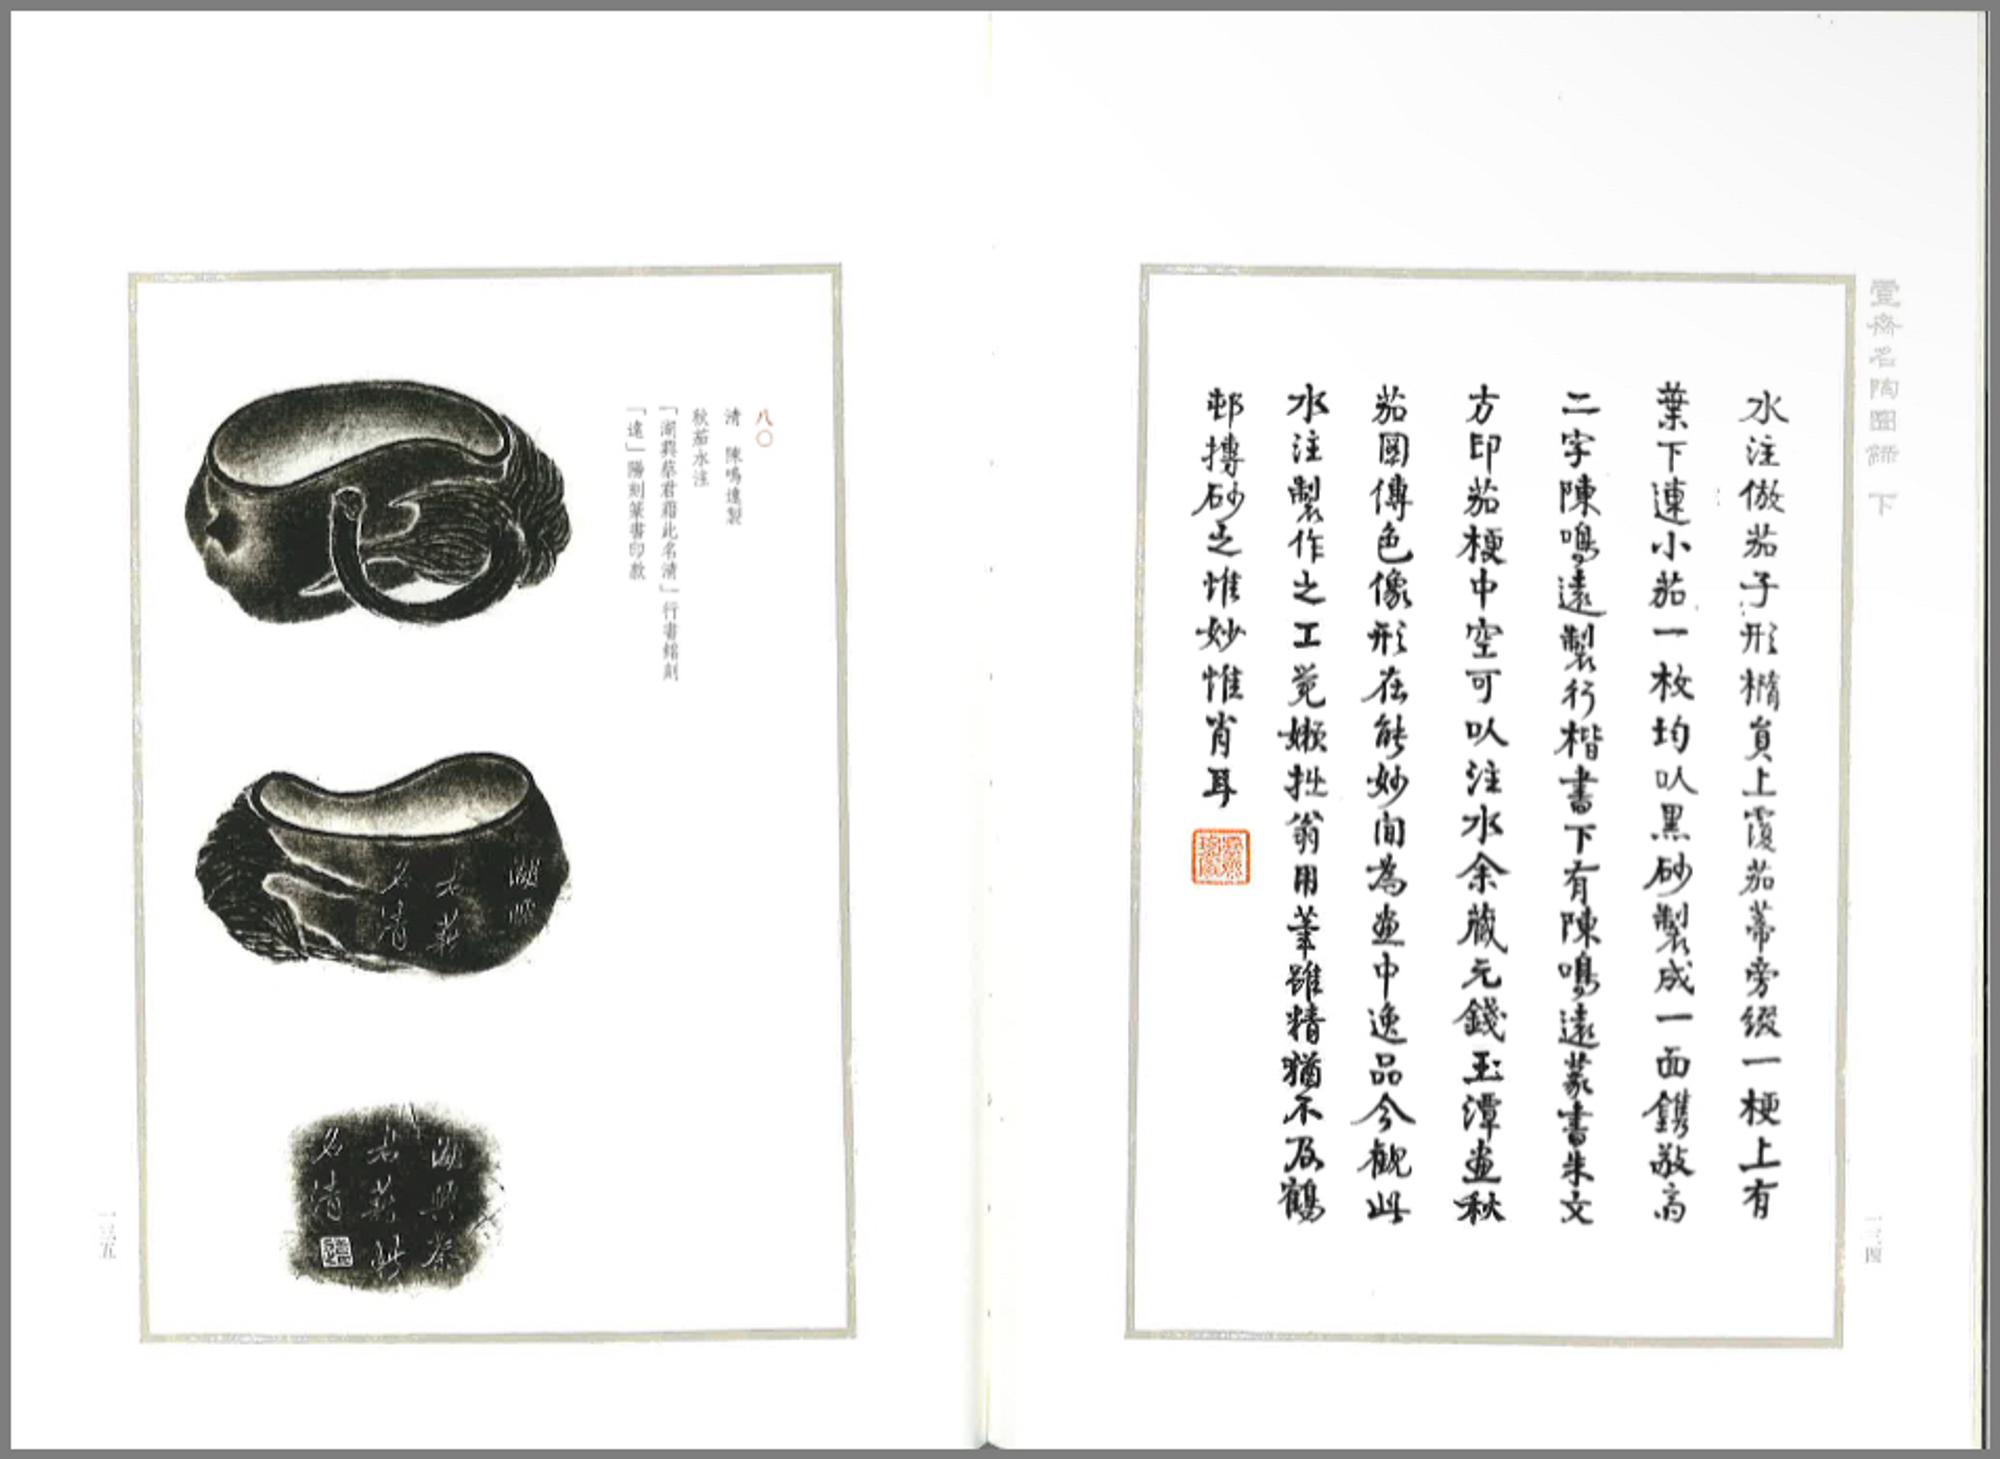 壹齋名陶圖錄 下
水注倣茄子形橢員上覆茄蒂旁綴一梗上有
葉下連小茄一枚均㕥黑砂製成一面鐫敬高
二字陳鳴遠製行楷書下有陳鳴遠篆書朱文
方印茄梗中空可㕥注水余藏元錢玉潭畫秋
茄圖傳色像形在能妙間為畫中逸品今觀此
水注製作之工覺嬾拙翁用筆雖精猶不及鶴
邨摶砂之惟妙惟肖耳
一三四
八〇
清 陳鳴遠製
秋茄水注
「湖興蔡君霜此名清」行書銘刻
「遠」陽刻篆書印款
湖興蔡
君 此
名清
一三五